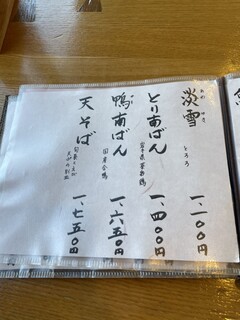 淡雪 とろろ 一、一〇〇円
あわ ゆき
とり南ばん 一、四〇〇円
鴨南ばん 国産合鴨 一、六五〇円
かも
天そば 一、七五〇円